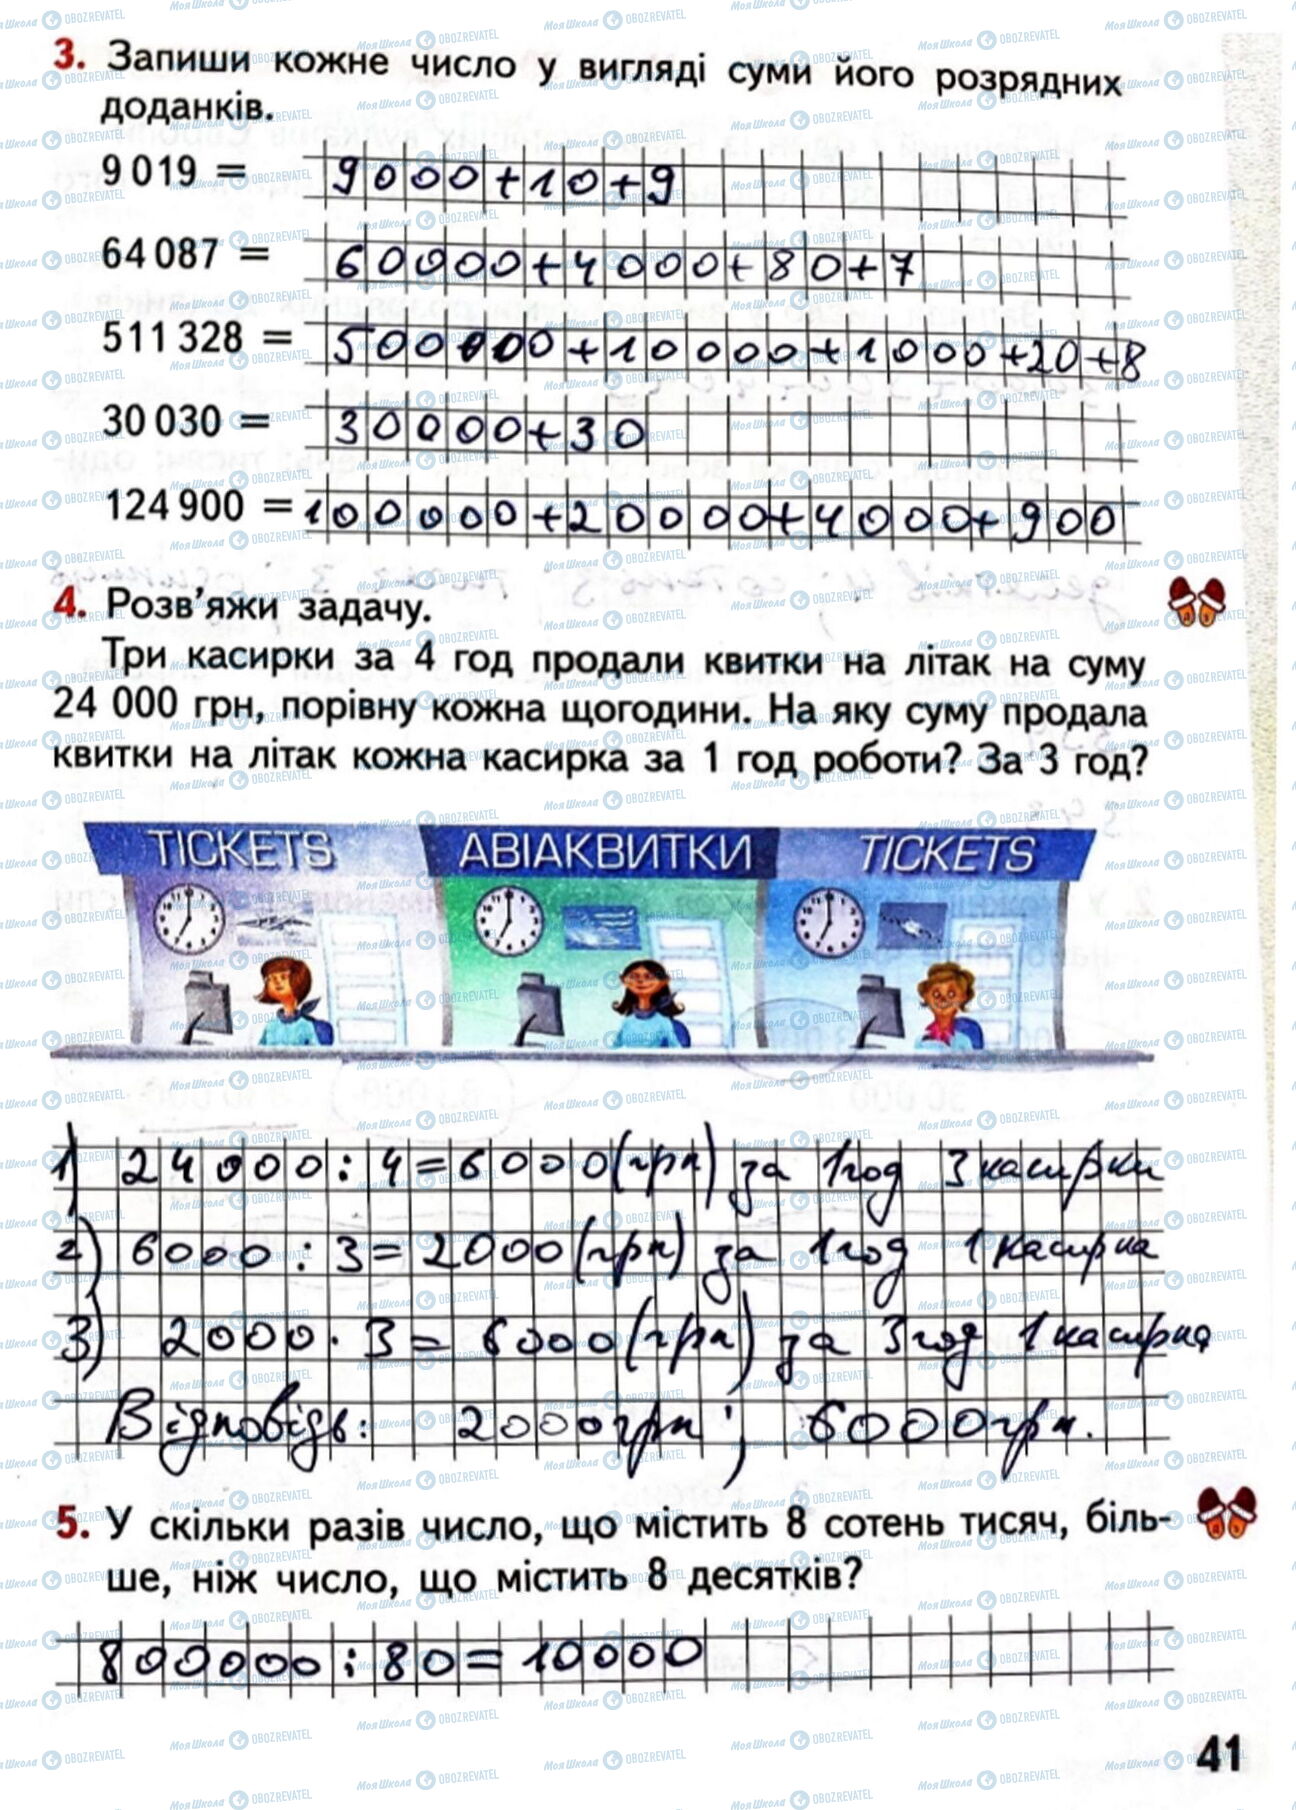 3. Запиши кожне число у вигляді суми його розрядних
доданків.
9 019 = 9000+10+9
64 087 = 60000+4000+80+7
511 328 = 500000+10000+1000+20+8
30 030 = 30000+30
124 900 = 100000+20000+4000+900
4. Розв’яжи задачу.
Три касирки за 4 год продали квитки на літак на суму
24 000 грн, порівну кожна щогодини. На яку суму продала
квитки на літак кожна касирка за 1 год роботи? За 3 год?
TICKETS АВІАКВИТКИ TICKETS
1) 24000:4=6000(грн) за 1 год 3 касирки
2) 6000:3=2000(грн) за 1 год 1 касирка
3) 2000·3=6000(грн) за 3 год 1 касирка
Відповідь: 2000грн; 6000грн.
5. У скільки разів число, що містить 8 сотень тисяч, біль-
ше, ніж число, що містить 8 десятків?
800000:80=10000
41
МояШкола OBOZREVATEL